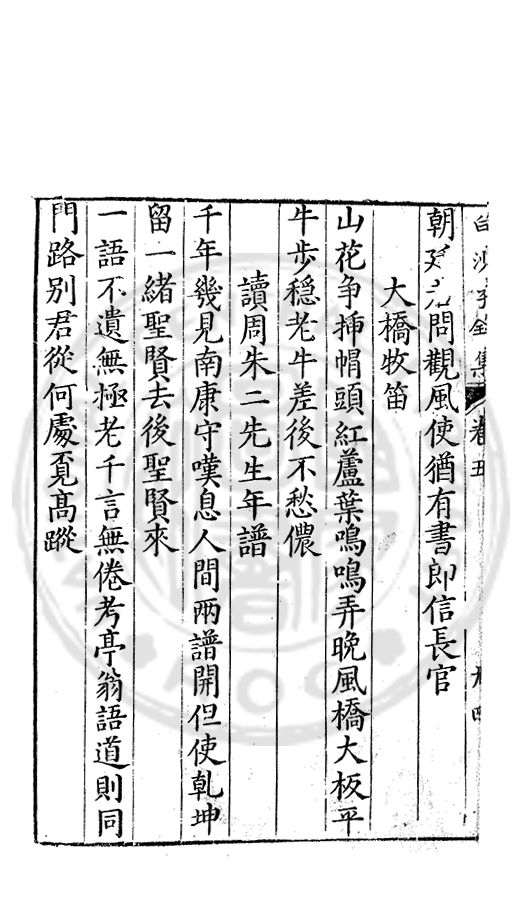 白沙子全集 卷五
朝 問觀風使猶有書郎信長官
大橋牧笛
山花争揷帽頭紅蘆葉鳴鳴弄晚風橋大板平
牛步穩老牛差後不愁儂
讀周朱二先生年譜
千年幾見南康守嘆息人間兩譜開但使乾坤
留一緒聖賢去後聖賢來
一語不遺無極老千言無倦考亭翁語道則同
門路别君從何處覔高蹤